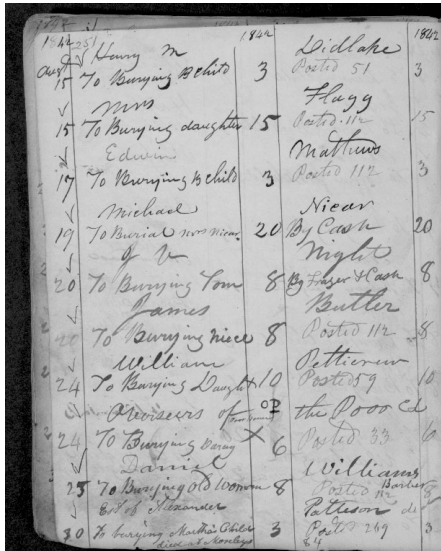 1842 1842 1842
Henry M Didlake
Augt 15 To Burying B Child 3 Posted 51 3
Mrs Flagg
15 To Burying daughter 15 Posted 112 15
Edwin Mathews
17 To Burying B Child 3 Posted 112 3
Michael Nicar
19 To Burial Mrs Nicar 20 By Cash 20
J V Night
20 To Burying Tom 8 By Frazer & Cash 8
James Butler
20 To Burying niece 8 Posted 112 8
William Pettigrew
24 To Burying Daught 10 Posted 59 10
Overseers of the Poor
24 To Burying 6 Posted 33 6
Daniel Williams
Barber
25 To Burying Old Woman 8 Posted 112 8
Est of Alexander Patteson
30 To burying Child 3 Posted 269 3
died at
84